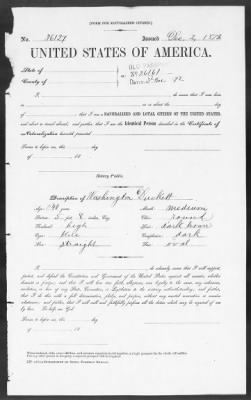 [FORM FOR NATURALIZED CITIZEN.]
No. 36127 Issued Dec. 2, 1872
UNITED STATES OF AMERICA.
State of
County of
I, do swear that I was born in
on or about the day
of ; that I am a NATURALIZED AND LOYAL CITIZEN OF THE UNITED STATES,
and about to travel abroad; and further, that I am the Identical Person described in the Certificate of
Naturalization herewith presented.
Sworn to before me, this day
of 18
Notary Public.
Description of Washington Duckett
Age: 48 years Mouth: medium
Stature: 5 ft 8 inches, Eng. Chin: round
Forehead: high Hair: dark brown
Eyes: blue Complexion: dark
Nose: straight Face: oval
I, do solemnly swear that I will support,
protect, and defend the Constitution and Government of the United States against all enemies, whether
domestic or foreign; and that I will bear true faith, allegiance, and loyalty to the same, any ordinance,
resolution, or law of any State, Convention, or Legislature to the contrary notwithstanding; and further,
that I do this with a full determination, pledge, and purpose, without any mental reservation or evasion
whatsoever; and further, that I will well and faithfully perform all the duties which may be required of me
by law. So help me God.
Sworn to before me, this day
of 18